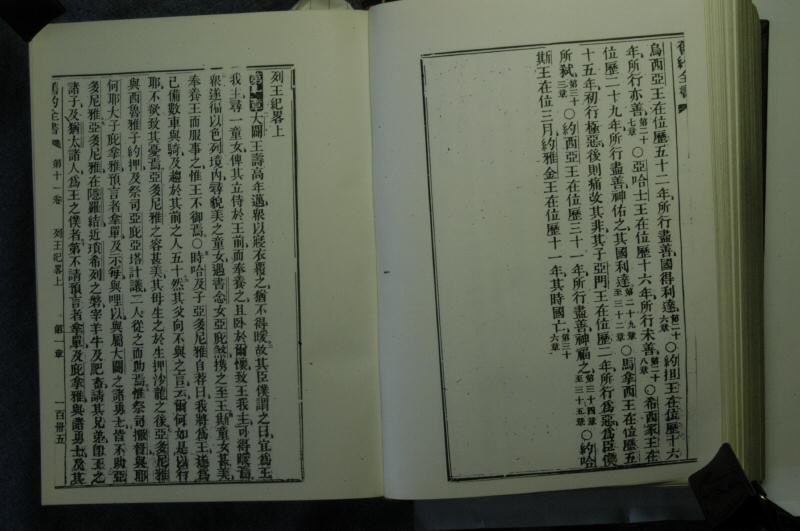 舊約全書
烏西亞王在位歷五十二年所行盡善國得利達第二十六章○約坦王在位歷十六
年所行亦善第二十七章○亞哈士王在位歷十六年所行未善第二十八章○希西家王在
位歷二十九年所行盡善神佑之其國利達第二十九章至三十二章○馬拿西王在位歷五
十五年初行極惡後則痛改其非其子亞門王在位歷二年所行為惡為臣僕
所弒第三十三章○約西亞王在位歷三十一年所行盡善神福之第三十四章至三十五章○約哈
斯王在位三月約雅金王在位歷十一年其時國亡第三十六章
列王紀畧上
第一章大闢王壽高年邁眾以戕衣覆之猶不得暖故其臣僕謂之曰宜為王
我主尋一童女俾其立侍於王前而奉養之且臥於爾懷致王我主可得暖焉
眾遂徧以色列境內尋貌美之童女遇書念女亞庇煞攜之至王斯童女甚美
奉養王而服事之惟王不御焉○時哈及子亞多尼雅自尊曰我將為王遂為
已備數車與騎及趨於其前之人五十然其父向不與之言云爾何如是以行
耶不欲致其憂焉亞多尼雅之容甚美其母生之於生押沙龍之後亞多尼雅
與西魯雅子約押及祭司亞庇亞塔計議二人從之而助焉惟祭司撒督與耶
何耶大子庇拿雅預言者拿單及示每與哩以與屬大闢之諸勇士皆不助亞
多尼雅亞多尼雅在隱羅結近瑣希列之磐宰羊牛及肥畜請其兄弟即王之
諸子及猶太諸人為王之僕者第不請預言者拿單及庇拿雅與諸勇士及其
舊約全書 第十一卷 列王紀畧上 第一章 一百卅五